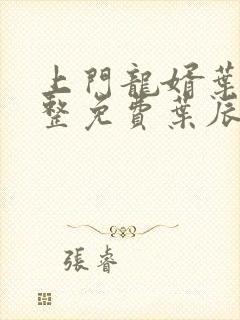 上門龍婿葉
整免費葉辰
張睿